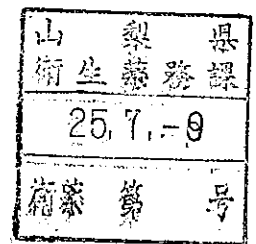 山梨県
衛生薬務課
25.7.-9
衛薬第 号